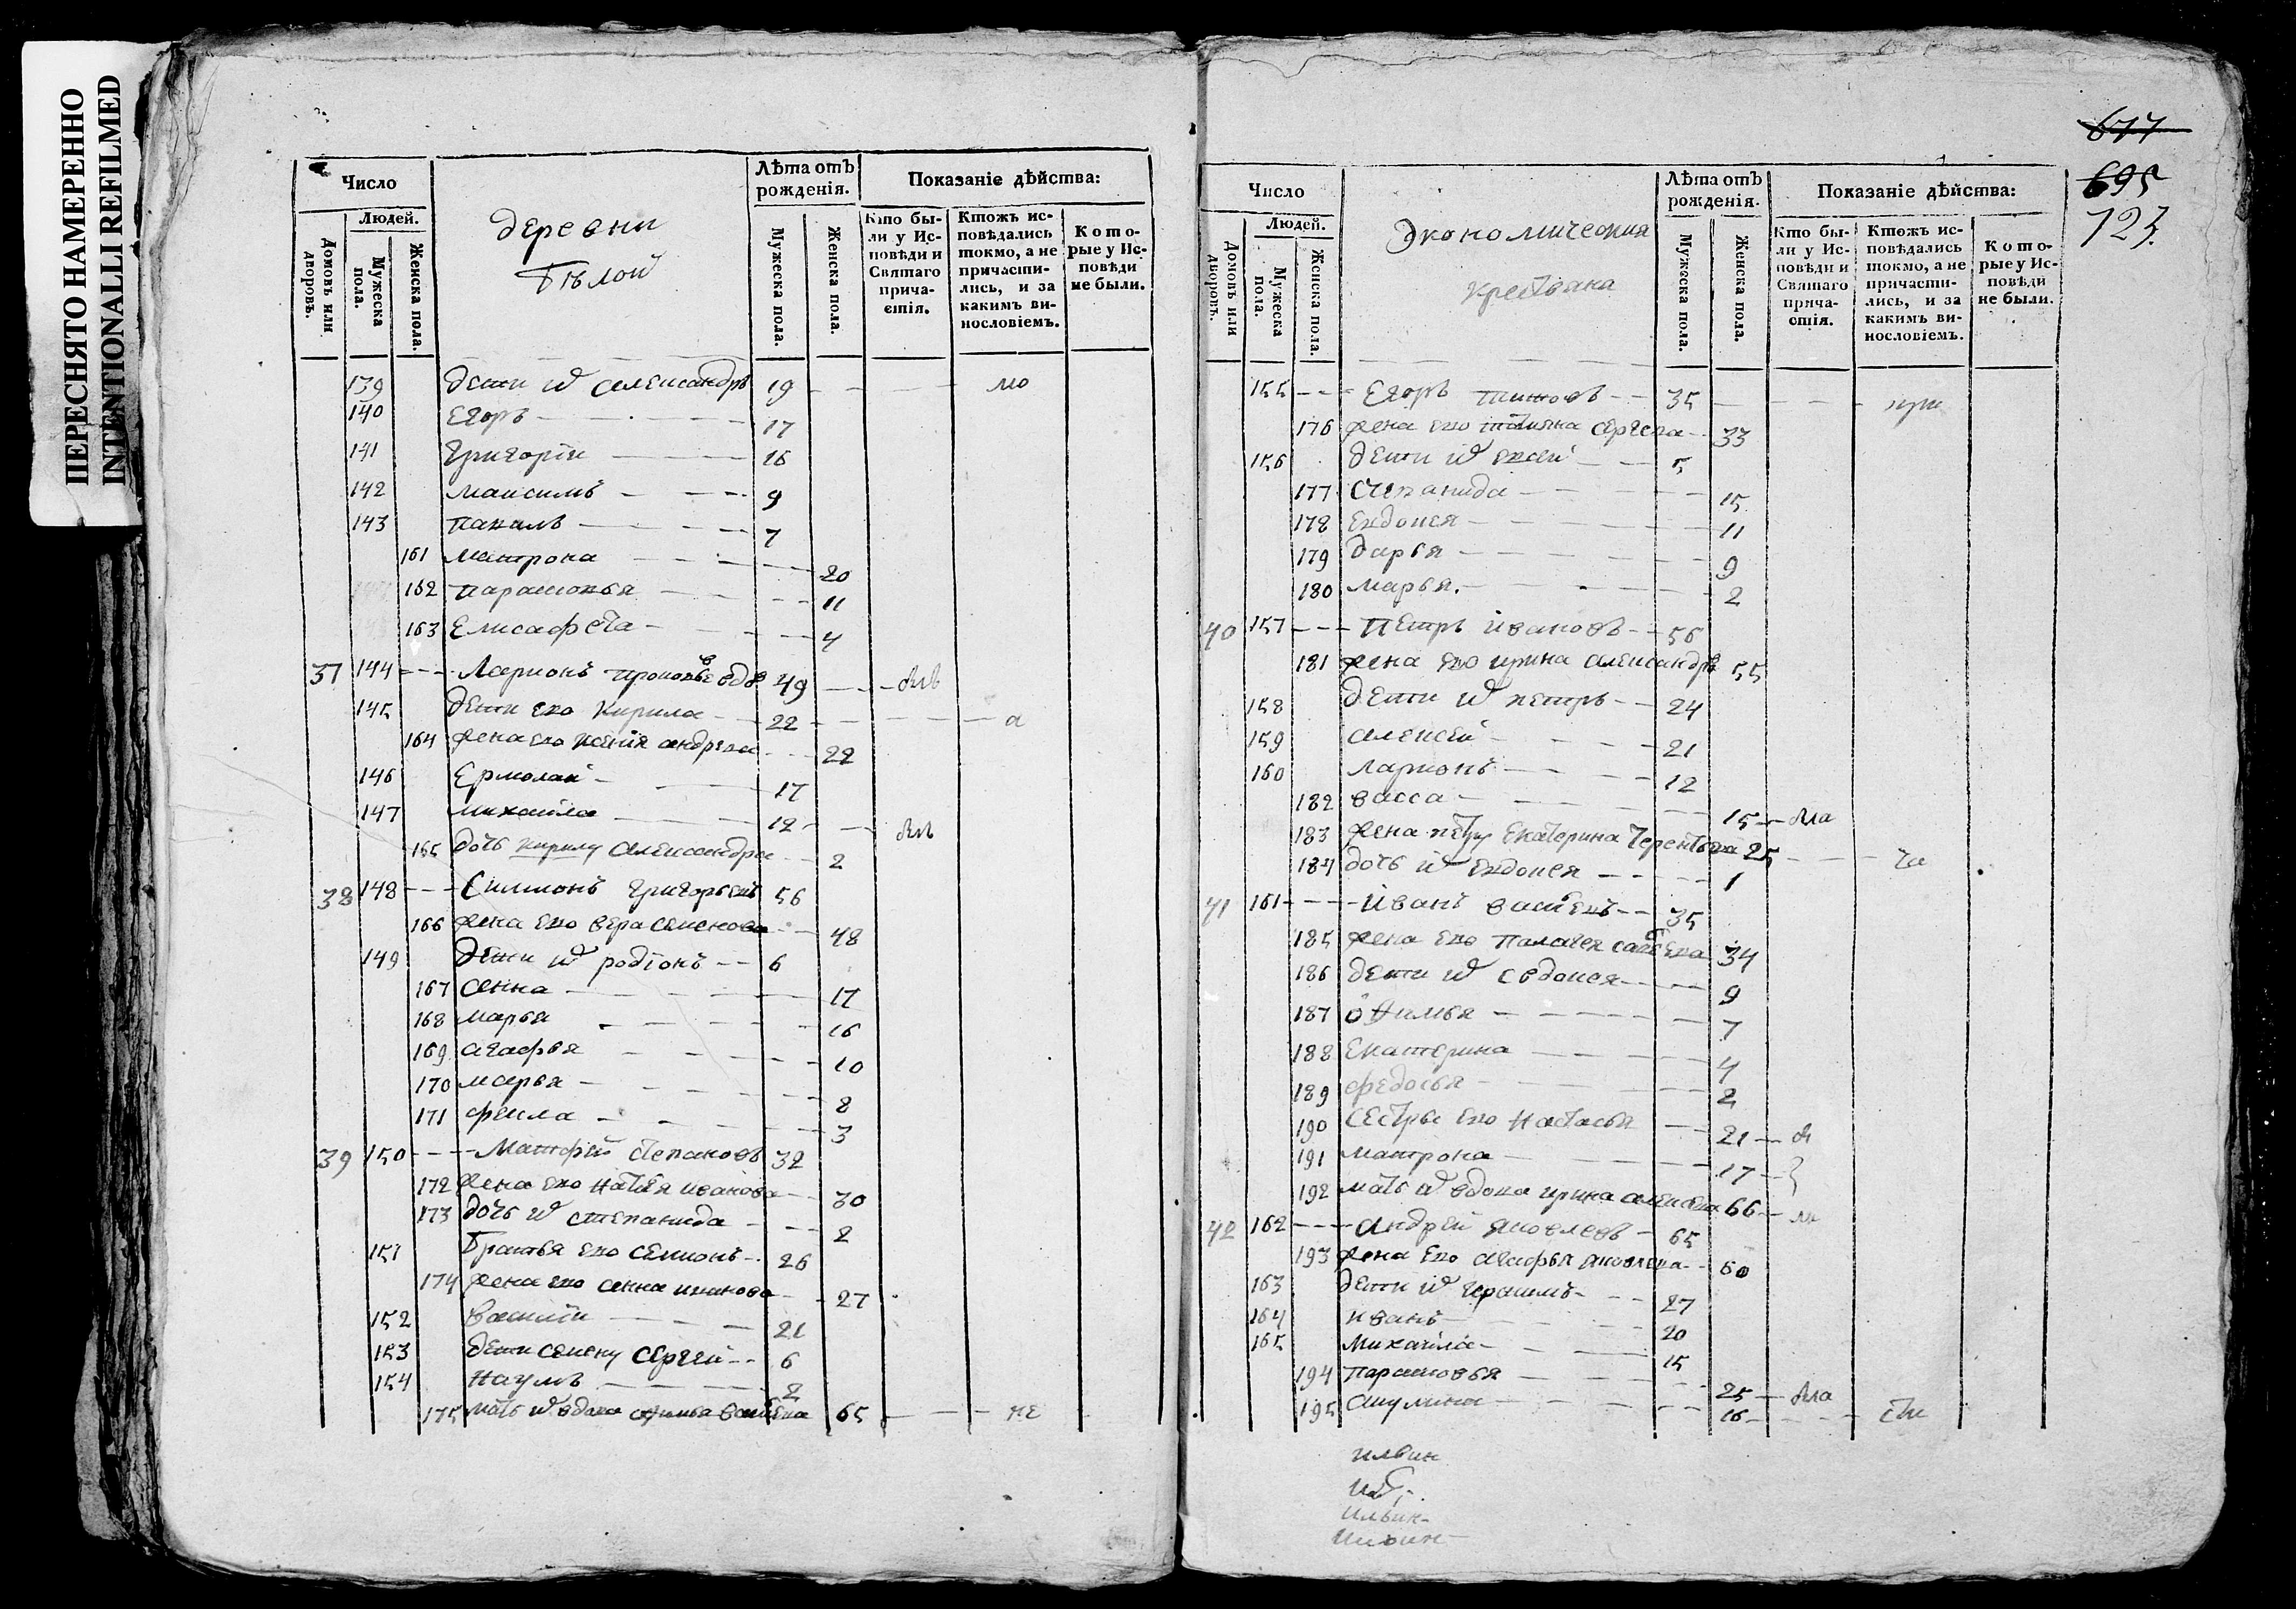 ПЕРЕСНЯТО НАМЕРЕННО
INTENTIONALLI REFILMED
Число
Людей.
Домовъ или дворовъ.
Мужеска пола.
Женска пола.
деревни
Бѣлой
Лѣта отъ рожденія.
Мужеска пола.
Женска пола.
Показаніе дѣйства:
Кто бы-
ли у Ис-
повѣди и
Святаго
прича-
стія.
Ктожъ ис-
повѣдались
токмо, а не
причасти-
лись, и за
какимъ ви-
нословіемъ.
Кото-
рые у Ис-
повѣди
не были.
139 дети ѿ александръ 19 мо
140 Егоръ 17
141 григорїи 16
142 максимъ 9
143 павилъ 7
161 матрона 20
162 парасковья 11
163 Елисафета 4
37 144 Ларионъ прокопьевъ вдвъ 49
145 дети его Кирила 22 а
164 жена его ксенїя андреева 22
146 Ермолай 17
147 михаила 12
165 дочь кирилу александра 2
38 148 Симионъ григорьевъ 56
166 жена его вера семенова 48
149 дети ѿ родїонъ 6
167 анна 17
168 марья 16
169 агафья 10
170 марья 8
171 фекла 3
39 150 Матфей степановъ 32
172 жена его наталья иванова 30
173 дочь ѿ степанида 2
151 Братья его семионъ 26
174 жена его анна иванова 27
152 василїи 21
153 дети семену сергей 6
154 наумъ 2
175 мать ѿ вдова афимья васильева 65 не
677
695
723
Число
Людей.
Домовъ или дворовъ.
Мужеска пола.
Женска пола.
Экономическия
крестьяна
Лѣта отъ рожденія.
Мужеска пола.
Женска пола.
Показаніе дѣйства:
Кто бы-
ли у Ис-
повѣди и
Святаго
прича-
стія.
Ктожъ ис-
повѣдались
токмо, а не
причасти-
лись, и за
какимъ ви-
нословіемъ.
Кото-
рые у Ис-
повѣди
не были.
155 Егоръ 35
176 жена его татияна сергеева 33
156 дети ѿ 5
177 степанида 15
178 Евдокея 11
179 дарья 9
180 марья. 2
40 157 Петръ ивановъ 56
181 жена его ирина александръ 55
158 дети ѿ петръ 24
159 алексей 21
160 ларионъ 12
182 васса 15 была
183 жена петру Екатерина терентьева 25
184 дочь ѿ евдокея 1
41 161 Иванъ васильевъ 35
185 жена его палагея савельева 34
186 дети ѿ евдокея 9
187 офимья 7
188 Екатерина 4
189 федосья 2
190 сестры его настасья 21
191 матрона 17
192 мать ѿ вдова ирина алексеева 66
42 162 андрей яковлевъ 65
193 жена его агафья яковлева 60
163 дети ѿ герасимъ 27
164 иванъ 20
165 михаила 15
194 парасковья 25 была
195 акулина 16
ильин
ильин